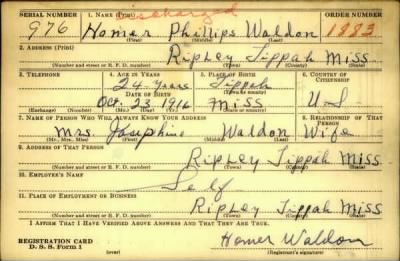 Discharged
SERIAL NUMBER 1. NAME (Print) ORDER NUMBER
976 Homer Phillips Waldon 1883
(First) (Middle) (Last)
2. ADDRESS (Print)
Ripley Tippah Miss
(Number and street or R. F. D. number) (Town) (County) (State)
3. TELEPHONE 4. AGE IN YEARS 5. PLACE OF BIRTH 6. COUNTRY OF CITIZENSHIP
24 years Tippah
DATE OF BIRTH (Town or county)
Oct. 23 1916 Miss U S
(Exchange) (Number) (Mo.) (Day) (Yr.) (State or country)
7. NAME OF PERSON WHO WILL ALWAYS KNOW YOUR ADDRESS 8. RELATIONSHIP OF THAT PERSON
Mrs. Josephine Waldon Wife
(Mr., Mrs., Miss) (First) (Middle) (Last)
9. ADDRESS OF THAT PERSON
Ripley Tippah Miss.
(Number and street or R. F. D. number) (Town) (County) (State)
10. EMPLOYER'S NAME
Self
11. PLACE OF EMPLOYMENT OR BUSINESS
Ripley Tippah Miss
(Number and street or R. F. D. number) (Town) (County) (State)
I AFFIRM THAT I HAVE VERIFIED ABOVE ANSWERS AND THAT THEY ARE TRUE.
REGISTRATION CARD Homer Waldon
D. S. S. Form 1 (over) (Registrant's signature)